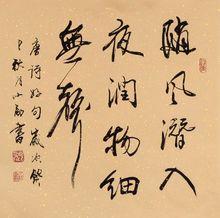 随风潜入
夜润物细
无声
唐诗好句岁次
秋月小勇书